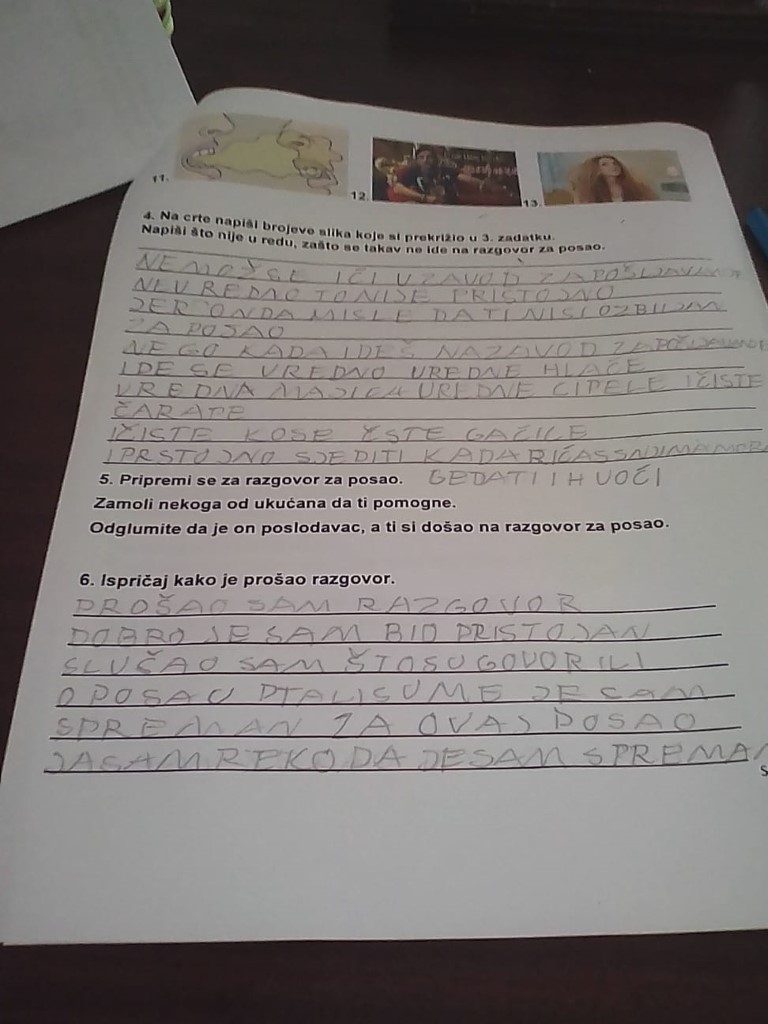 11. 12. 13.
4. Na crte napiši brojeve slika koje si prekrižio u 3. zadatku.
Napiši što nije u redu, zašto se takav ne ide na razgovor za posao.
NEMOŽSE IČI UZAVOD ZAPOŠLJAVANJ
NEUREDNO TO NIJE PRISTOJNO
JER ONDA MISLE DA TI NISI OZBILJAN
ZA POSAO
NEGO KADA IDEŠ NAZAVOD ZAPOŠLJAVANJE
IDE SE UREDNO UREDNE HLAČE
UREDNA MAJICA UREDNE CIPELE IČISTE
ČARAPE
IČISTE KOSE ČSTE GAČICE
IPRSTOJNO SJEDITI KADA RIČAŠ SNJIMA MORA
5. Pripremi se za razgovor za posao. GEDATI IH UOČI
Zamoli nekoga od ukućana da ti pomogne.
Odglumite da je on poslodavac, a ti si došao na razgovor za posao.
6. Ispričaj kako je prošao razgovor.
PROŠAO SAM RAZGOVOR
DOBRO JE SAM BIO PRISTOJAN
SLUČAO SAM ŠTOSU GOVORILI
O POSAU PTALISUME JE SAM
SPREMAN ZA OVAJ POSAO
JASAM REKO DA JESAM SPREMAN